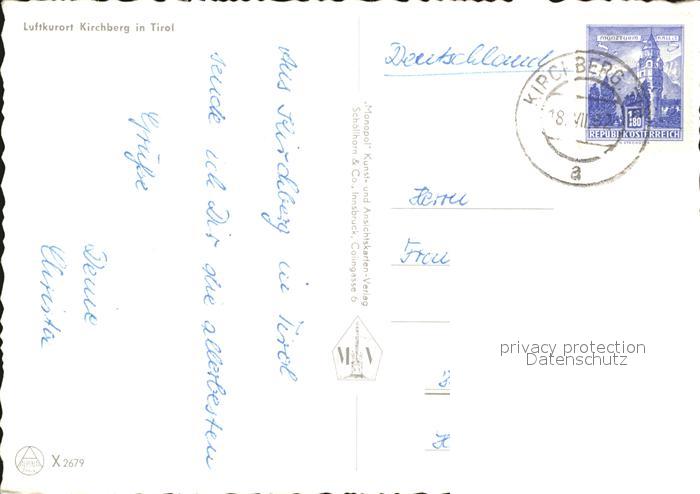 Luftkurort Kirchberg in Tirol
Aus Kirchberg in Tirol
sende ich Dir die allerbesten
Grüße
Deine
Christa
X 2679
„Monopol" Kunst- und Ansichtskarten-Verlag
Schöllhorn & Co., Innsbruck, Colingasse 6
Deutschland
MÜNZTURM HALL
1.80
REPUBLIK ÖSTERREICH
KIRCHBERG
a
Herrn
Frau
privacy protection
Datenschutz